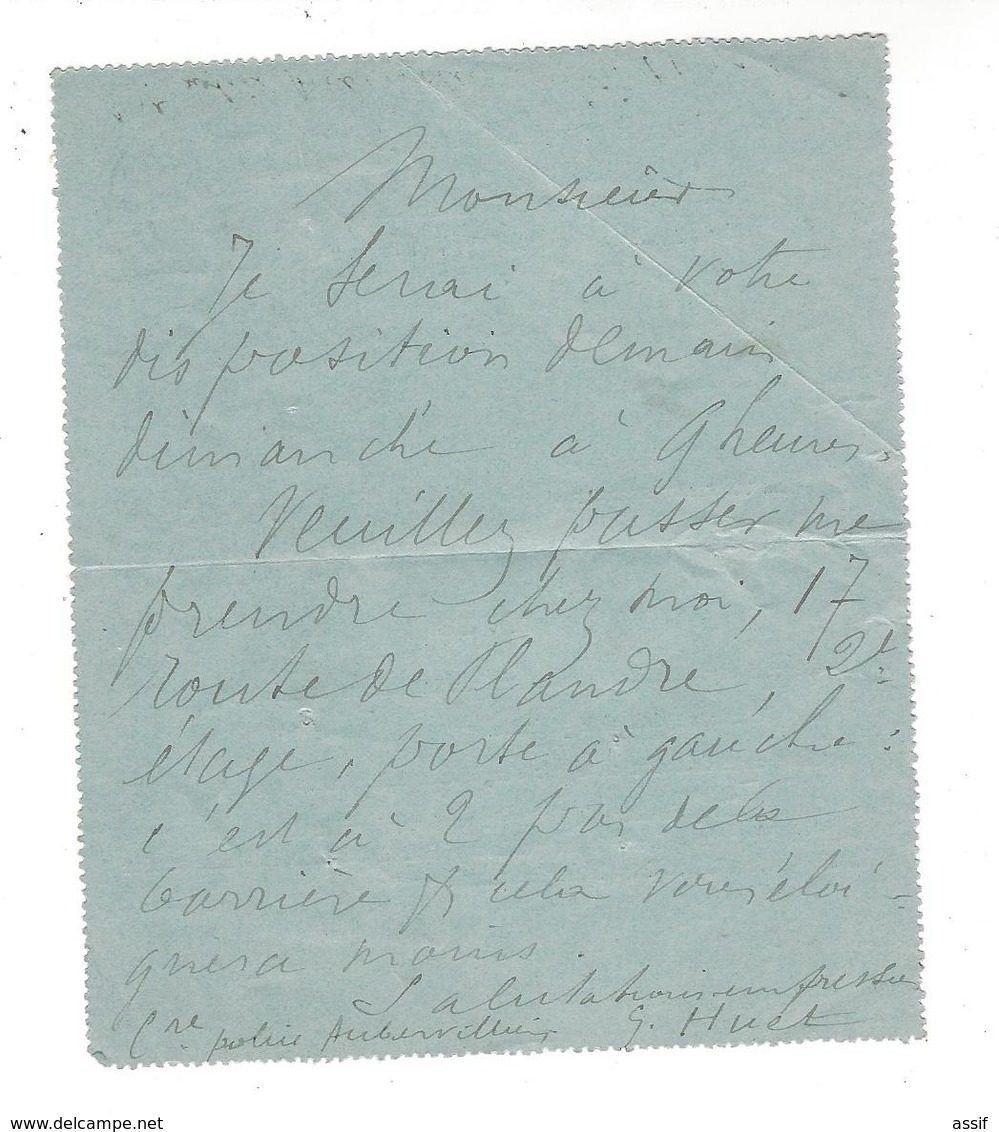 Monsieur
Je serai à votre
disposition demain
dimanche à 9 heures.
Veuillez passer me
prendre chez moi, 17
route de Flandre, 2e
étage, porte à gauche :
c'est à 2 pas de la
barrière & cela vous éloi-
gnera moins.
Salutations empressées
G. Huet
Cre police Aubervilliers
www.delcampe.net
assif